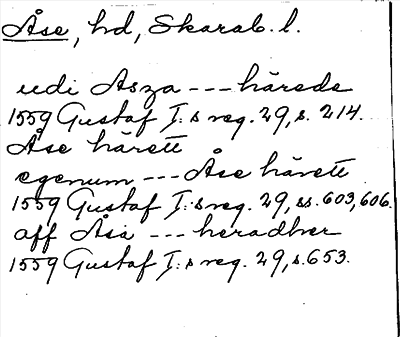 Åse, hd, Skarab. l.
udi Asza --- härede
1559 Gustaf I:s reg. 29, s. 214.
Åse härett
egenum --- Åse härett
1559 Gustaf I:s reg. 29, ss. 603, 606.
aff Åsa --- heradher
1559 Gustaf I:s reg. 29, s. 653.